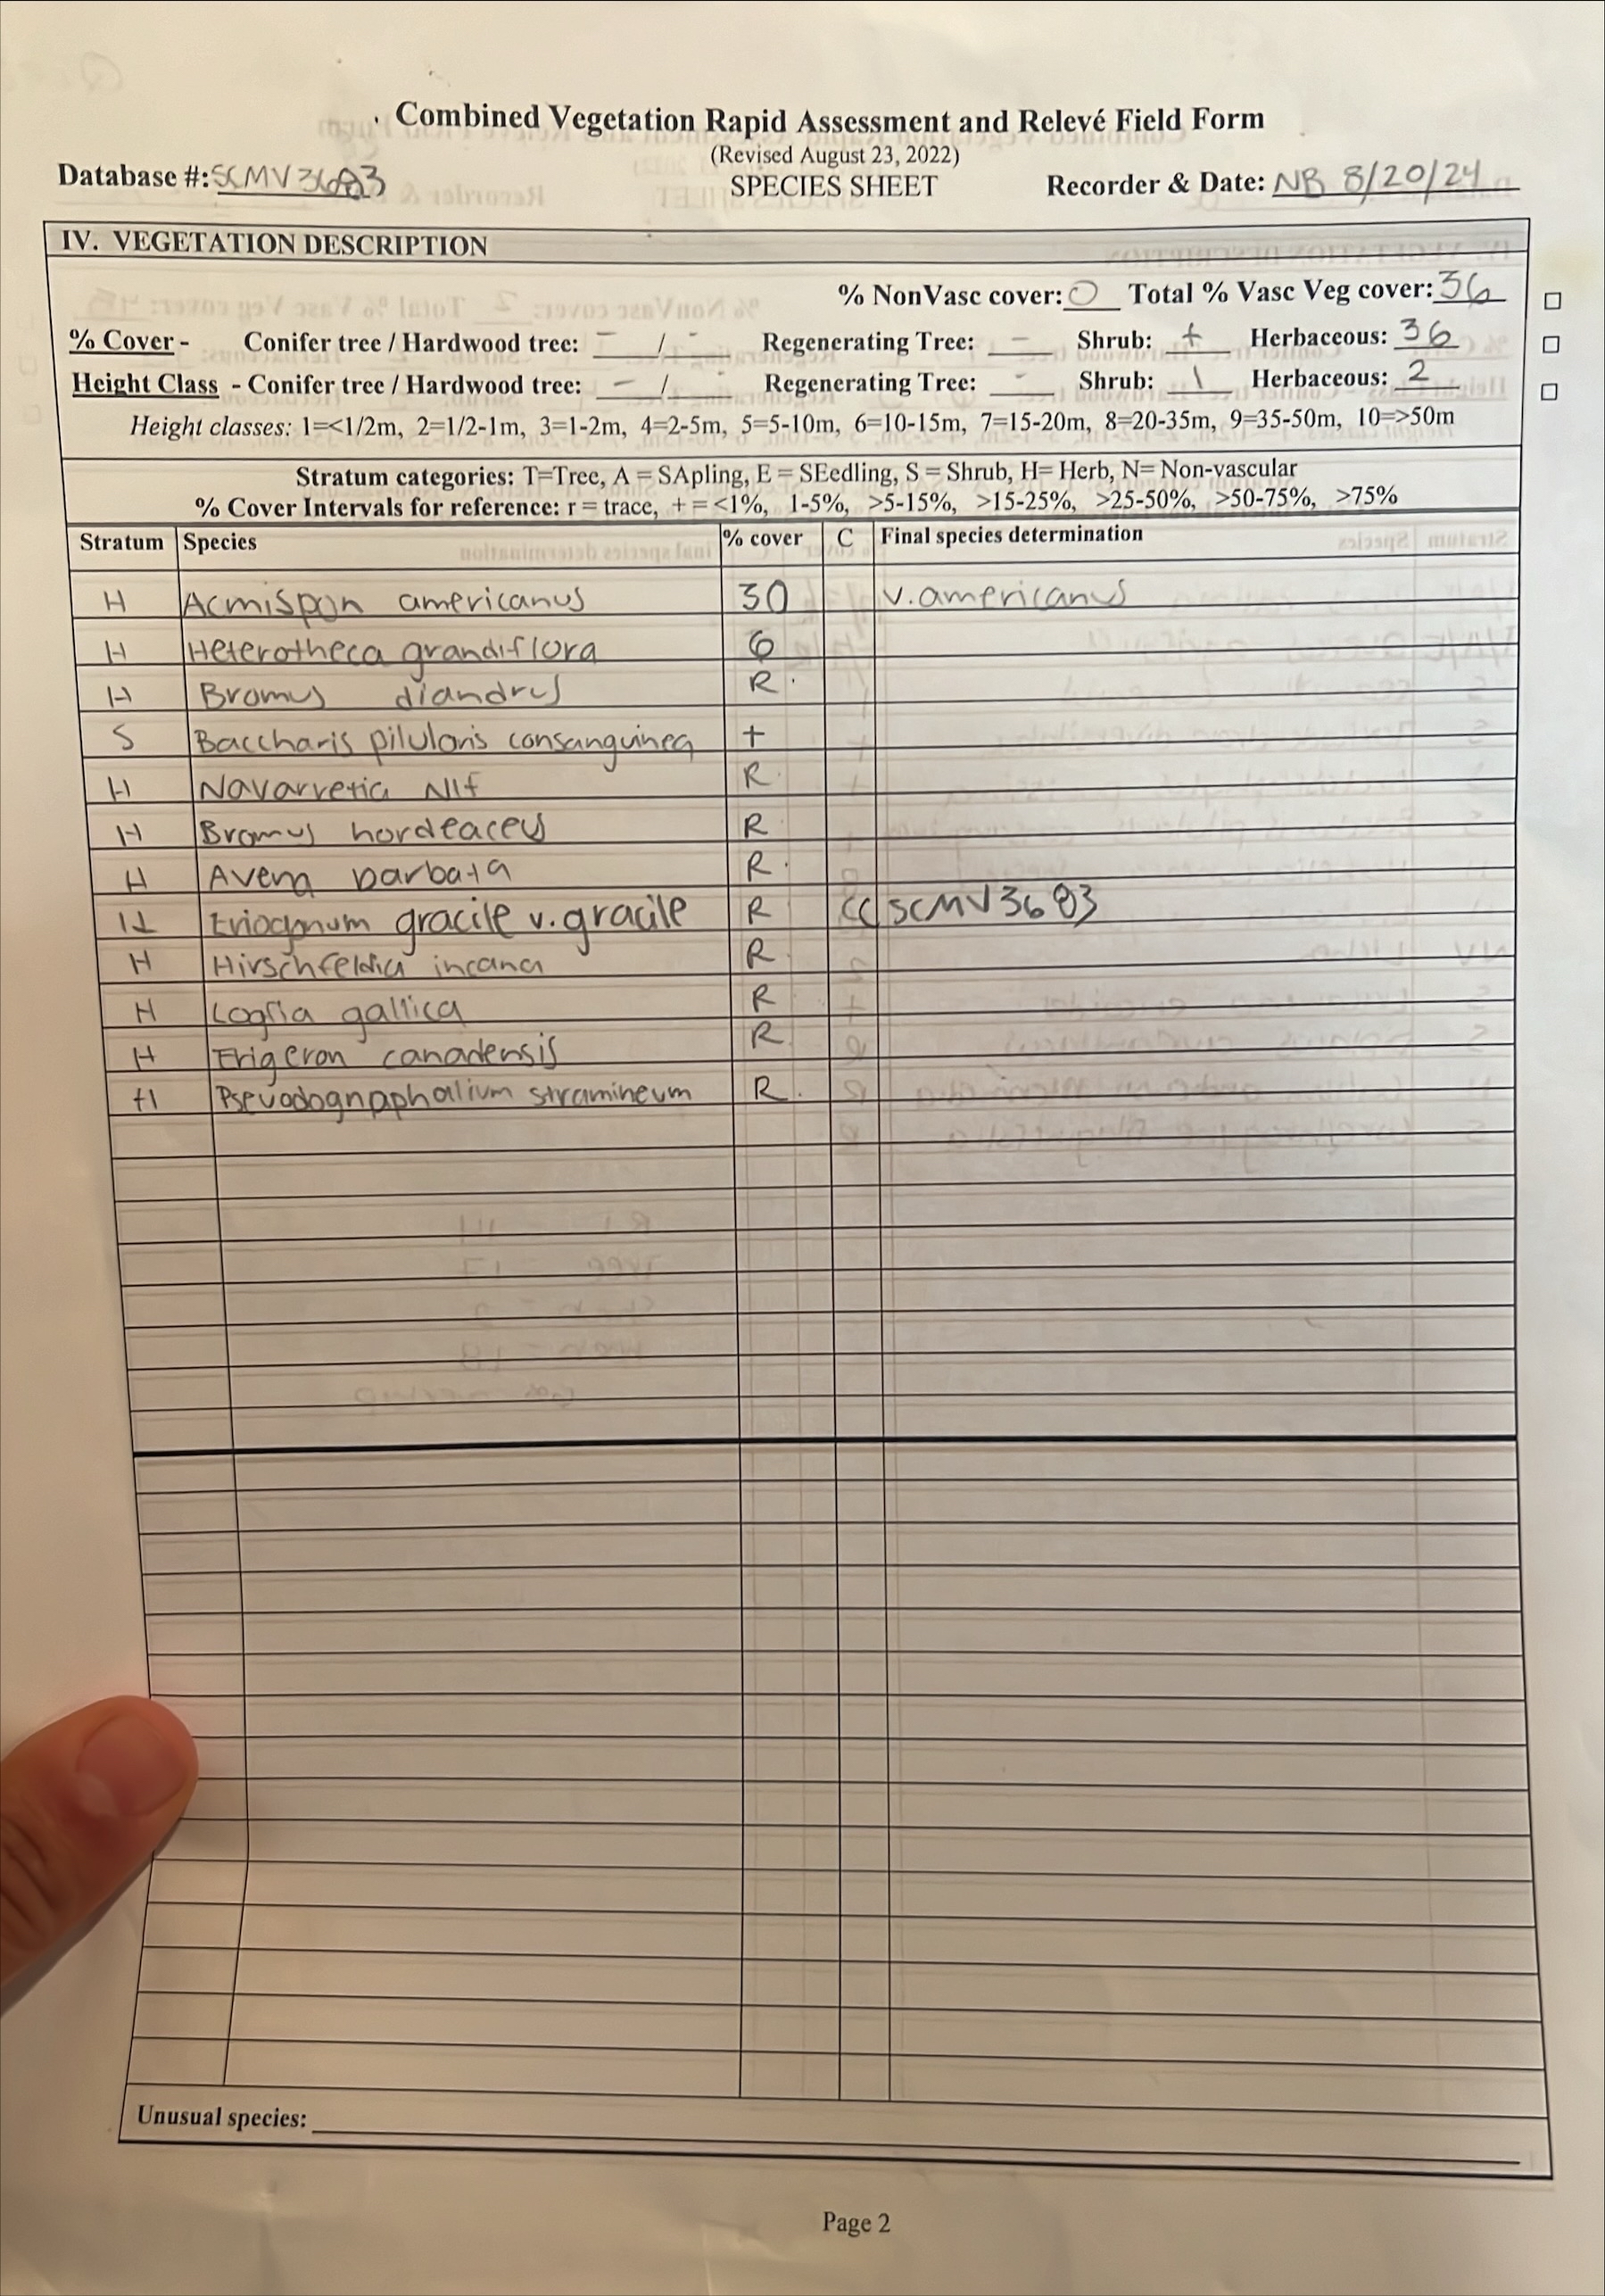 Combined Vegetation Rapid Assessment and Relevé Field Form
(Revised August 23, 2022)
Database #: SCMV3603 SPECIES SHEET Recorder & Date: NB 8/20/24
IV. VEGETATION DESCRIPTION
% NonVasc cover: 0 Total % Vasc Veg cover: 36
% Cover - Conifer tree / Hardwood tree: - / - Regenerating Tree: - Shrub: + Herbaceous: 36
Height Class - Conifer tree / Hardwood tree: - / - Regenerating Tree: - Shrub: 1 Herbaceous: 2
Height classes: 1=<1/2m, 2=1/2-1m, 3=1-2m, 4=2-5m, 5=5-10m, 6=10-15m, 7=15-20m, 8=20-35m, 9=35-50m, 10=>50m
Stratum categories: T=Tree, A = SApling, E = SEedling, S = Shrub, H= Herb, N= Non-vascular
% Cover Intervals for reference: r = trace, + = <1%, 1-5%, >5-15%, >15-25%, >25-50%, >50-75%, >75%
Stratum Species % cover C Final species determination
H Acmispon americanus 30 v. americanus
H Heterotheca grandiflora 6
H Bromus diandrus R
S Baccharis pilularis consanguinea +
H Navarretia NIf R
H Bromus hordeaceus R
H Avena barbata R
H Eriogonum gracile v. gracile R CC SCMV3603
H Hirschfeldia incana R
H Logfia gallica R
H Erigeron canadensis R
H Pseuodognaphalium stramineum R
Unusual species:
Page 2